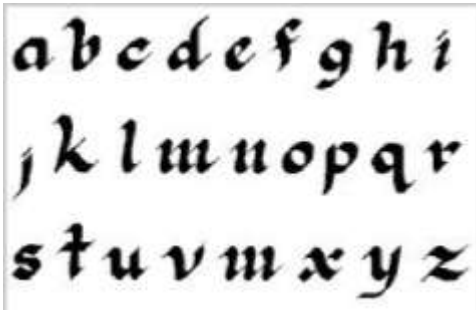 a b c d e f g h i
j k l m n o p q r
s t u v m x y z